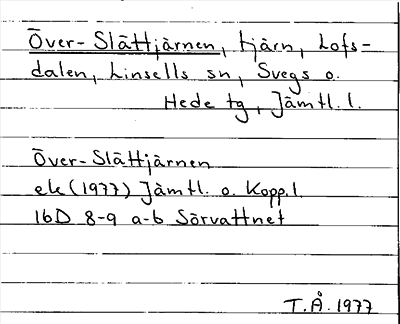 Över-Slättjärnen, tjärn, Lofs-
dalen, Linsells sn, Svegs o.
Hede tg, Jämtl. l.
Över-Slättjärnen
ek (1977) Jämtl. o. Kopp. l
16D 8-9 a-b Sörvattnet
T.Å. 1977